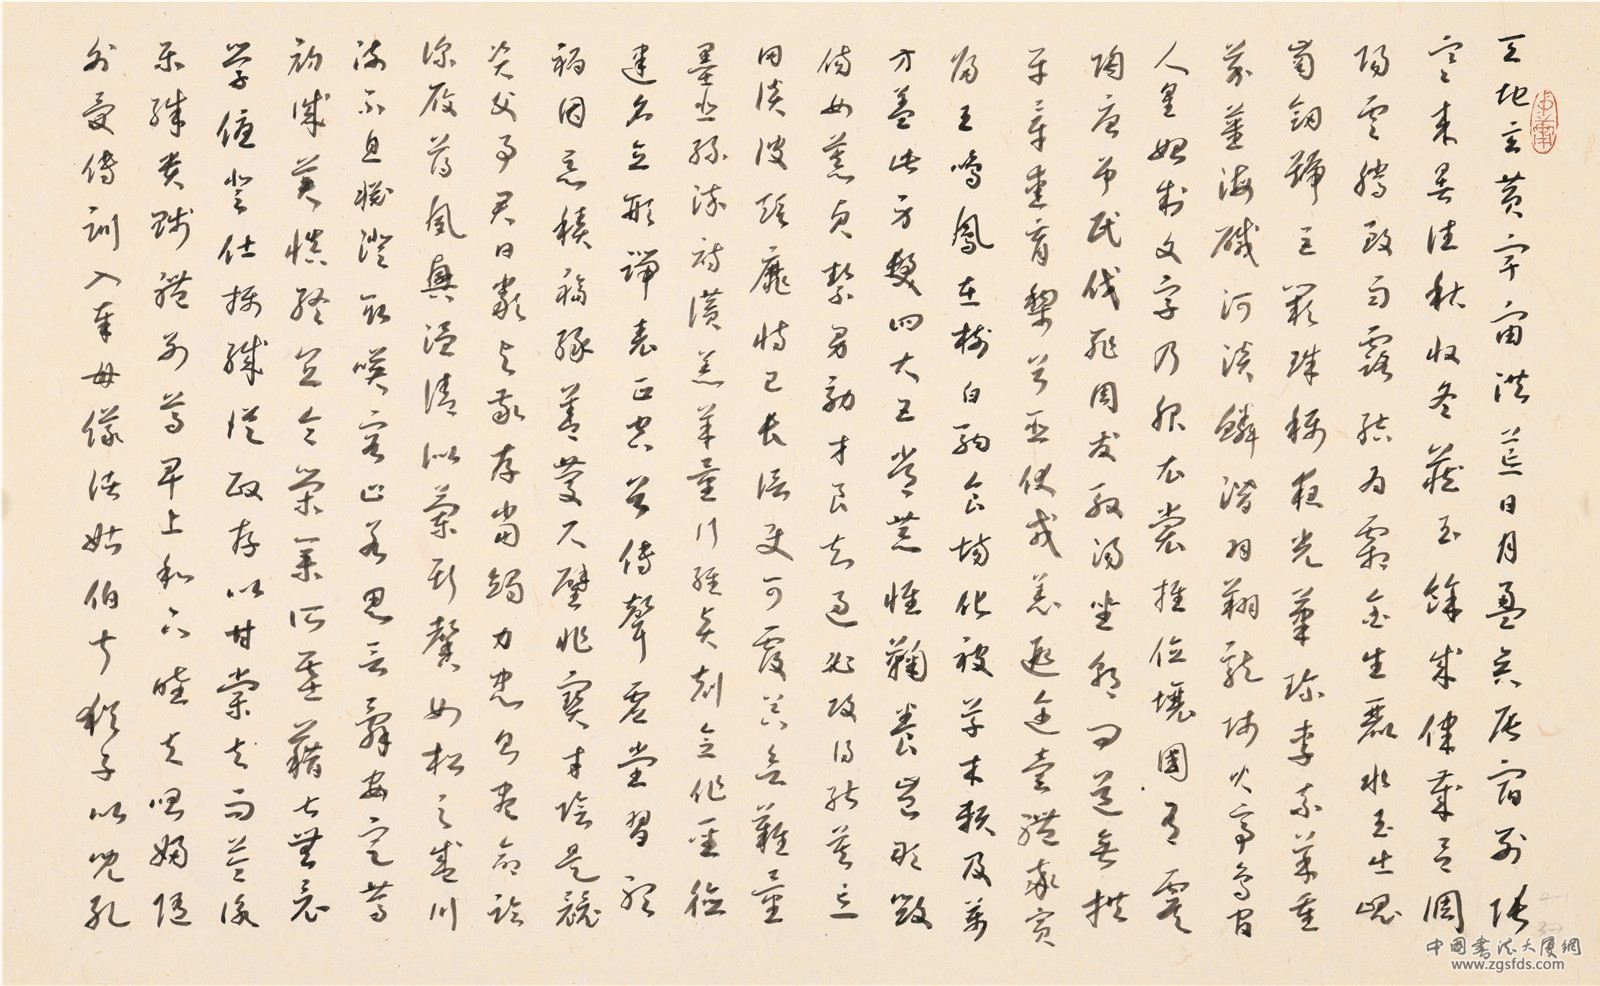 天地玄黄宇宙洪荒日月盈昃辰宿列張
寒来暑往秋收冬藏閏餘成歲律吕調
陽雲騰致雨露結為霜金生麗水玉出崐
崗劍號巨闕珠稱夜光菓珍李柰菜重
芥薑海鹹河淡鱗潛羽翔龍師火帝鳥官
人皇始制文字乃服衣裳推位讓國有虞
陶唐弔民伐罪周發殷湯坐朝問道垂拱
平章愛育黎首臣伏戎羌遐迩壹體率賓
歸王鳴鳳在樹白駒食場化被草木賴及萬
方蓋此身髮四大五常恭惟鞠養豈敢毀
傷女慕貞絜男效才良知過必改得能莫忘
罔談彼短靡恃己長信使可覆器欲難量
墨悲絲染詩讚羔羊景行維賢剋念作聖德
建名立形端表正空谷傳聲虛堂習聽
禍因惡積福緣善慶尺璧非寶寸陰是競
資父事君曰嚴與敬孝當竭力忠則盡命臨
深履薄夙興溫凊似蘭斯馨如松之盛川
流不息淵澄取暎容止若思言辭安定篤
初誠美慎終宜令榮業所基藉甚無竟
學優登仕攝職從政存以甘棠去而益詠
樂殊貴賤禮別尊卑上和下睦夫唱婦隨
外受傅訓入奉母儀諸姑伯叔猶子比兒孔
中国書法大厦網
www.zgsfds.com